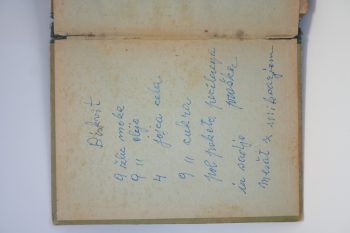 Biskvit
9 žlic moke
9 11 olja
4 jajca cela
9 11 cukra
pol paketa pecilnega
praška
in sadje
mešat z mikserjem